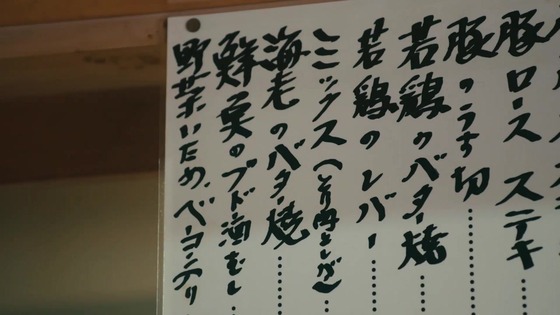 豚ロース ステキ
豚のうす切……
若鶏のバター焼……
若鶏のレバー……
ミックス(とり肉とレバー)……
海老のバター焼……
のブドー酒むし……
野菜いため、ベーコン入り